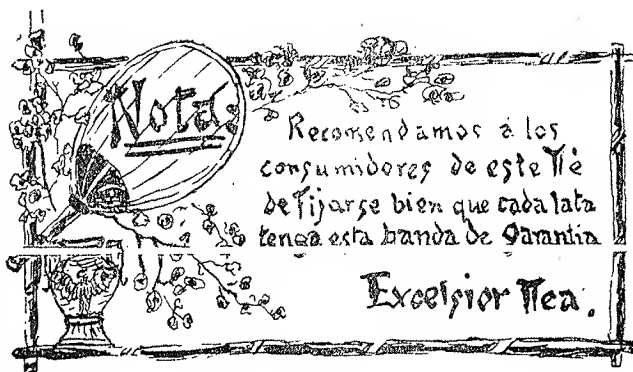 Nota
Recomendamos á los
consumidores de este Té
de fijarse bien que cada lata
tenga esta banda de Garantia
Excelsior Tea.